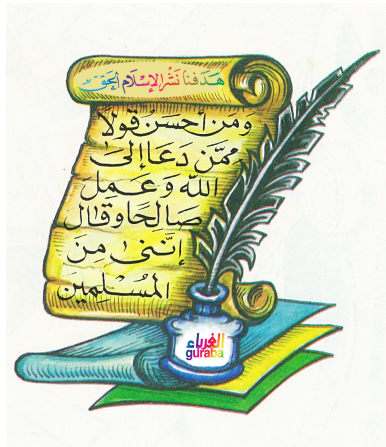 هدفنا نشر الإسلام الحق
وَمَنْ أَحْسَنُ قَوْلاً
مِّمَّن دَعَا إِلَى
اللّه وَعَمِلَ
صَالِحًا وَقَالَ
إِنَّنِي مِنَ
المُسْلِمِينَ
الغرباء
guraba